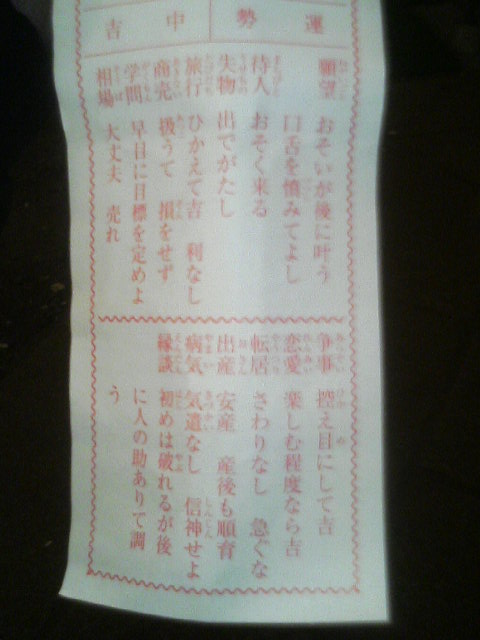 運勢 中吉
願望 おそいが後に叶う
口舌を慎みてよし
待人 おそく来る
失物 出でがたし
旅行 ひかえて吉 利なし
商売 扱うて 損をせず
学問 早目に目標を定めよ
相場 大丈夫 売れ
争事 控え目にして吉
恋愛 楽しむ程度なら吉
転居 さわりなし 急ぐな
出産 安産 産後も順育
病気 気遣なし 信神せよ
縁談 初めは破れるが後
に人の助ありて調
う